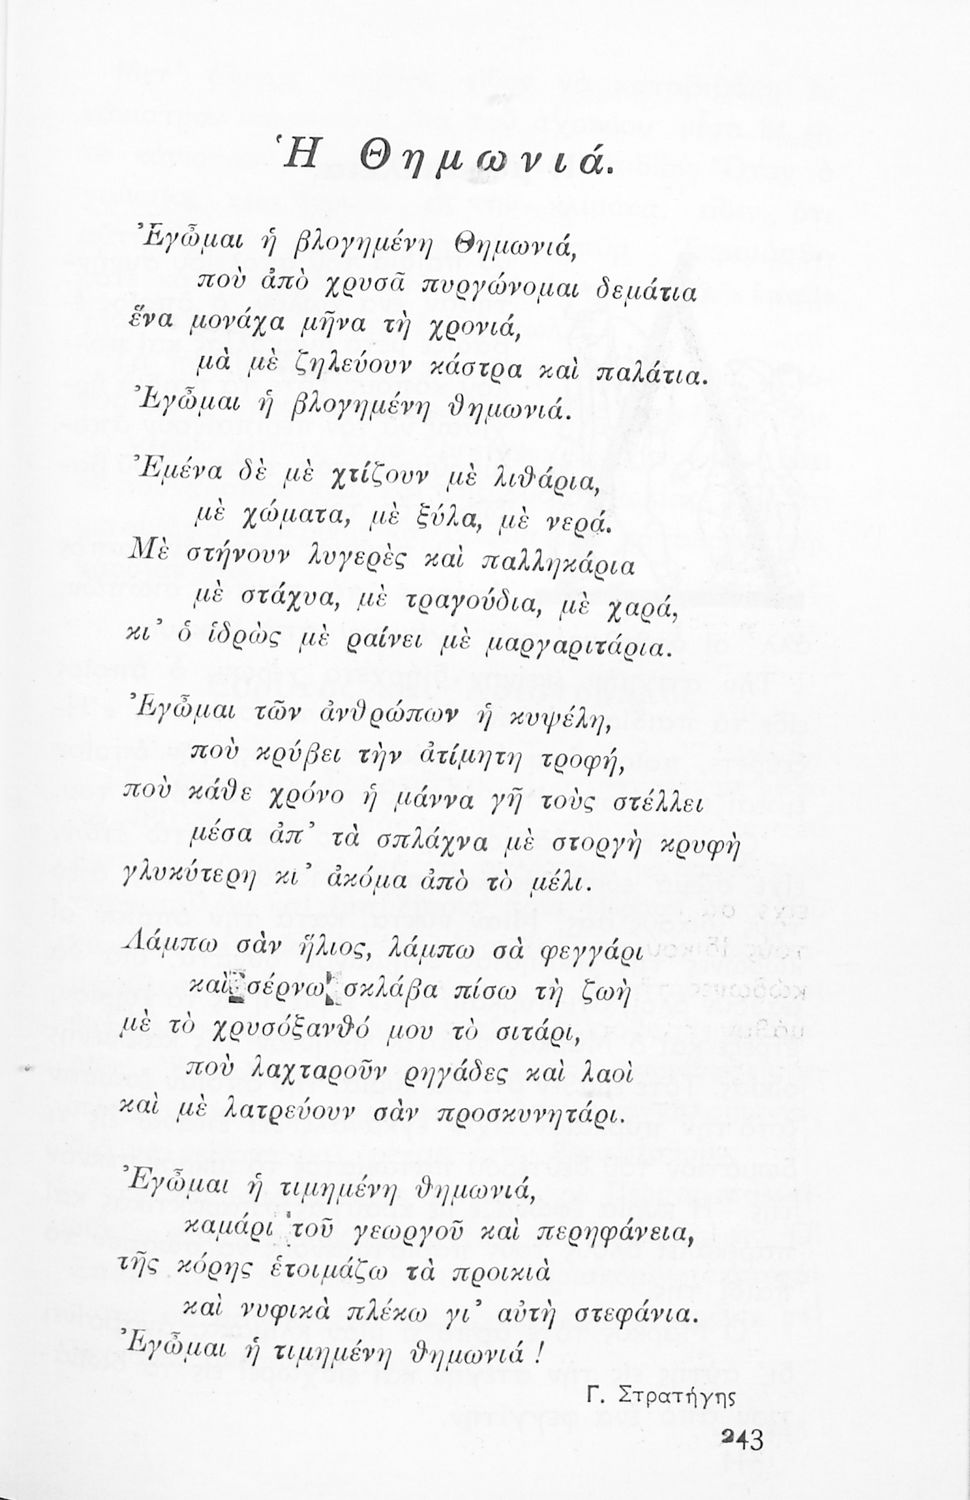 Ἡ Θημωνιά.
Ἐγὦμαι ἡ βλογημένη Θημωνιά,
ποὺ ἀπὸ χρυσᾶ πυργώνομαι δεμάτια
ἕνα μονάχα μῆνα τὴ χρονιά,
μὰ μὲ ζηλεύουν κάστρα καὶ παλάτια.
Ἐγὦμαι ἡ βλογημένη θημωνιά.
Ἐμένα δὲ μὲ χτίζουν μὲ λιθάρια,
μὲ χώματα, μὲ ξύλα, μὲ νερά.
Μὲ στήνουν λυγερὲς καὶ παλληκάρια
μὲ στάχυα, μὲ τραγούδια, μὲ χαρά,
κι᾿ ὁ ἱδρὼς μὲ ραίνει μὲ μαργαριτάρια.
Ἐγὦμαι τῶν ἀνθρώπων ἡ κυψέλη,
ποὺ κρύβει τὴν ἀτίμητη τροφή,
ποὺ κάθε χρόνο ἡ μάννα γῆ τοὺς στέλλει
μέσα ἀπ᾿ τὰ σπλάχνα μὲ στοργὴ κρυφὴ
γλυκύτερη κι᾿ ἀκόμα ἀπὸ τὸ μέλι.
Λάμπω σὰν ἥλιος, λάμπω σὰ φεγγάρι
καὶ σέρνω σκλάβα πίσω τὴ ζωὴ
μὲ τὸ χρυσόξανθό μου τὸ σιτάρι,
ποὺ λαχταροῦν ρηγάδες καὶ λαοὶ
καὶ μὲ λατρεύουν σὰν προσκυνητάρι.
Ἐγὦμαι ἡ τιμημένη θημωνιά,
καμάρι τοῦ γεωργοῦ καὶ περηφάνεια,
τῆς κόρης ἑτοιμάζω τὰ προικιὰ
καὶ νυφικὰ πλέκω γι᾿ αὐτὴ στεφάνια.
Ἐγὦμαι ἡ τιμημένη θημωνιά !
Γ. Στρατήγης
243